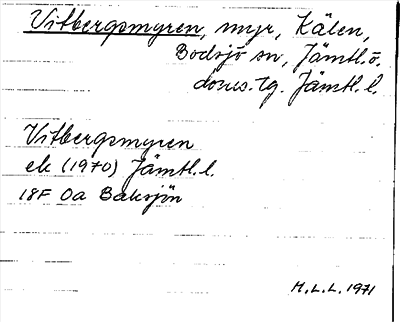 Vitbergsmyren, myr, Kälen,
Bodsjö sn, Jämtl.ö.
doms.tg. Jämtl.l.
Vitbergsmyren
ek (1970) Jämtl.l.
18F 0a Baksjön
H.L.L. 1971